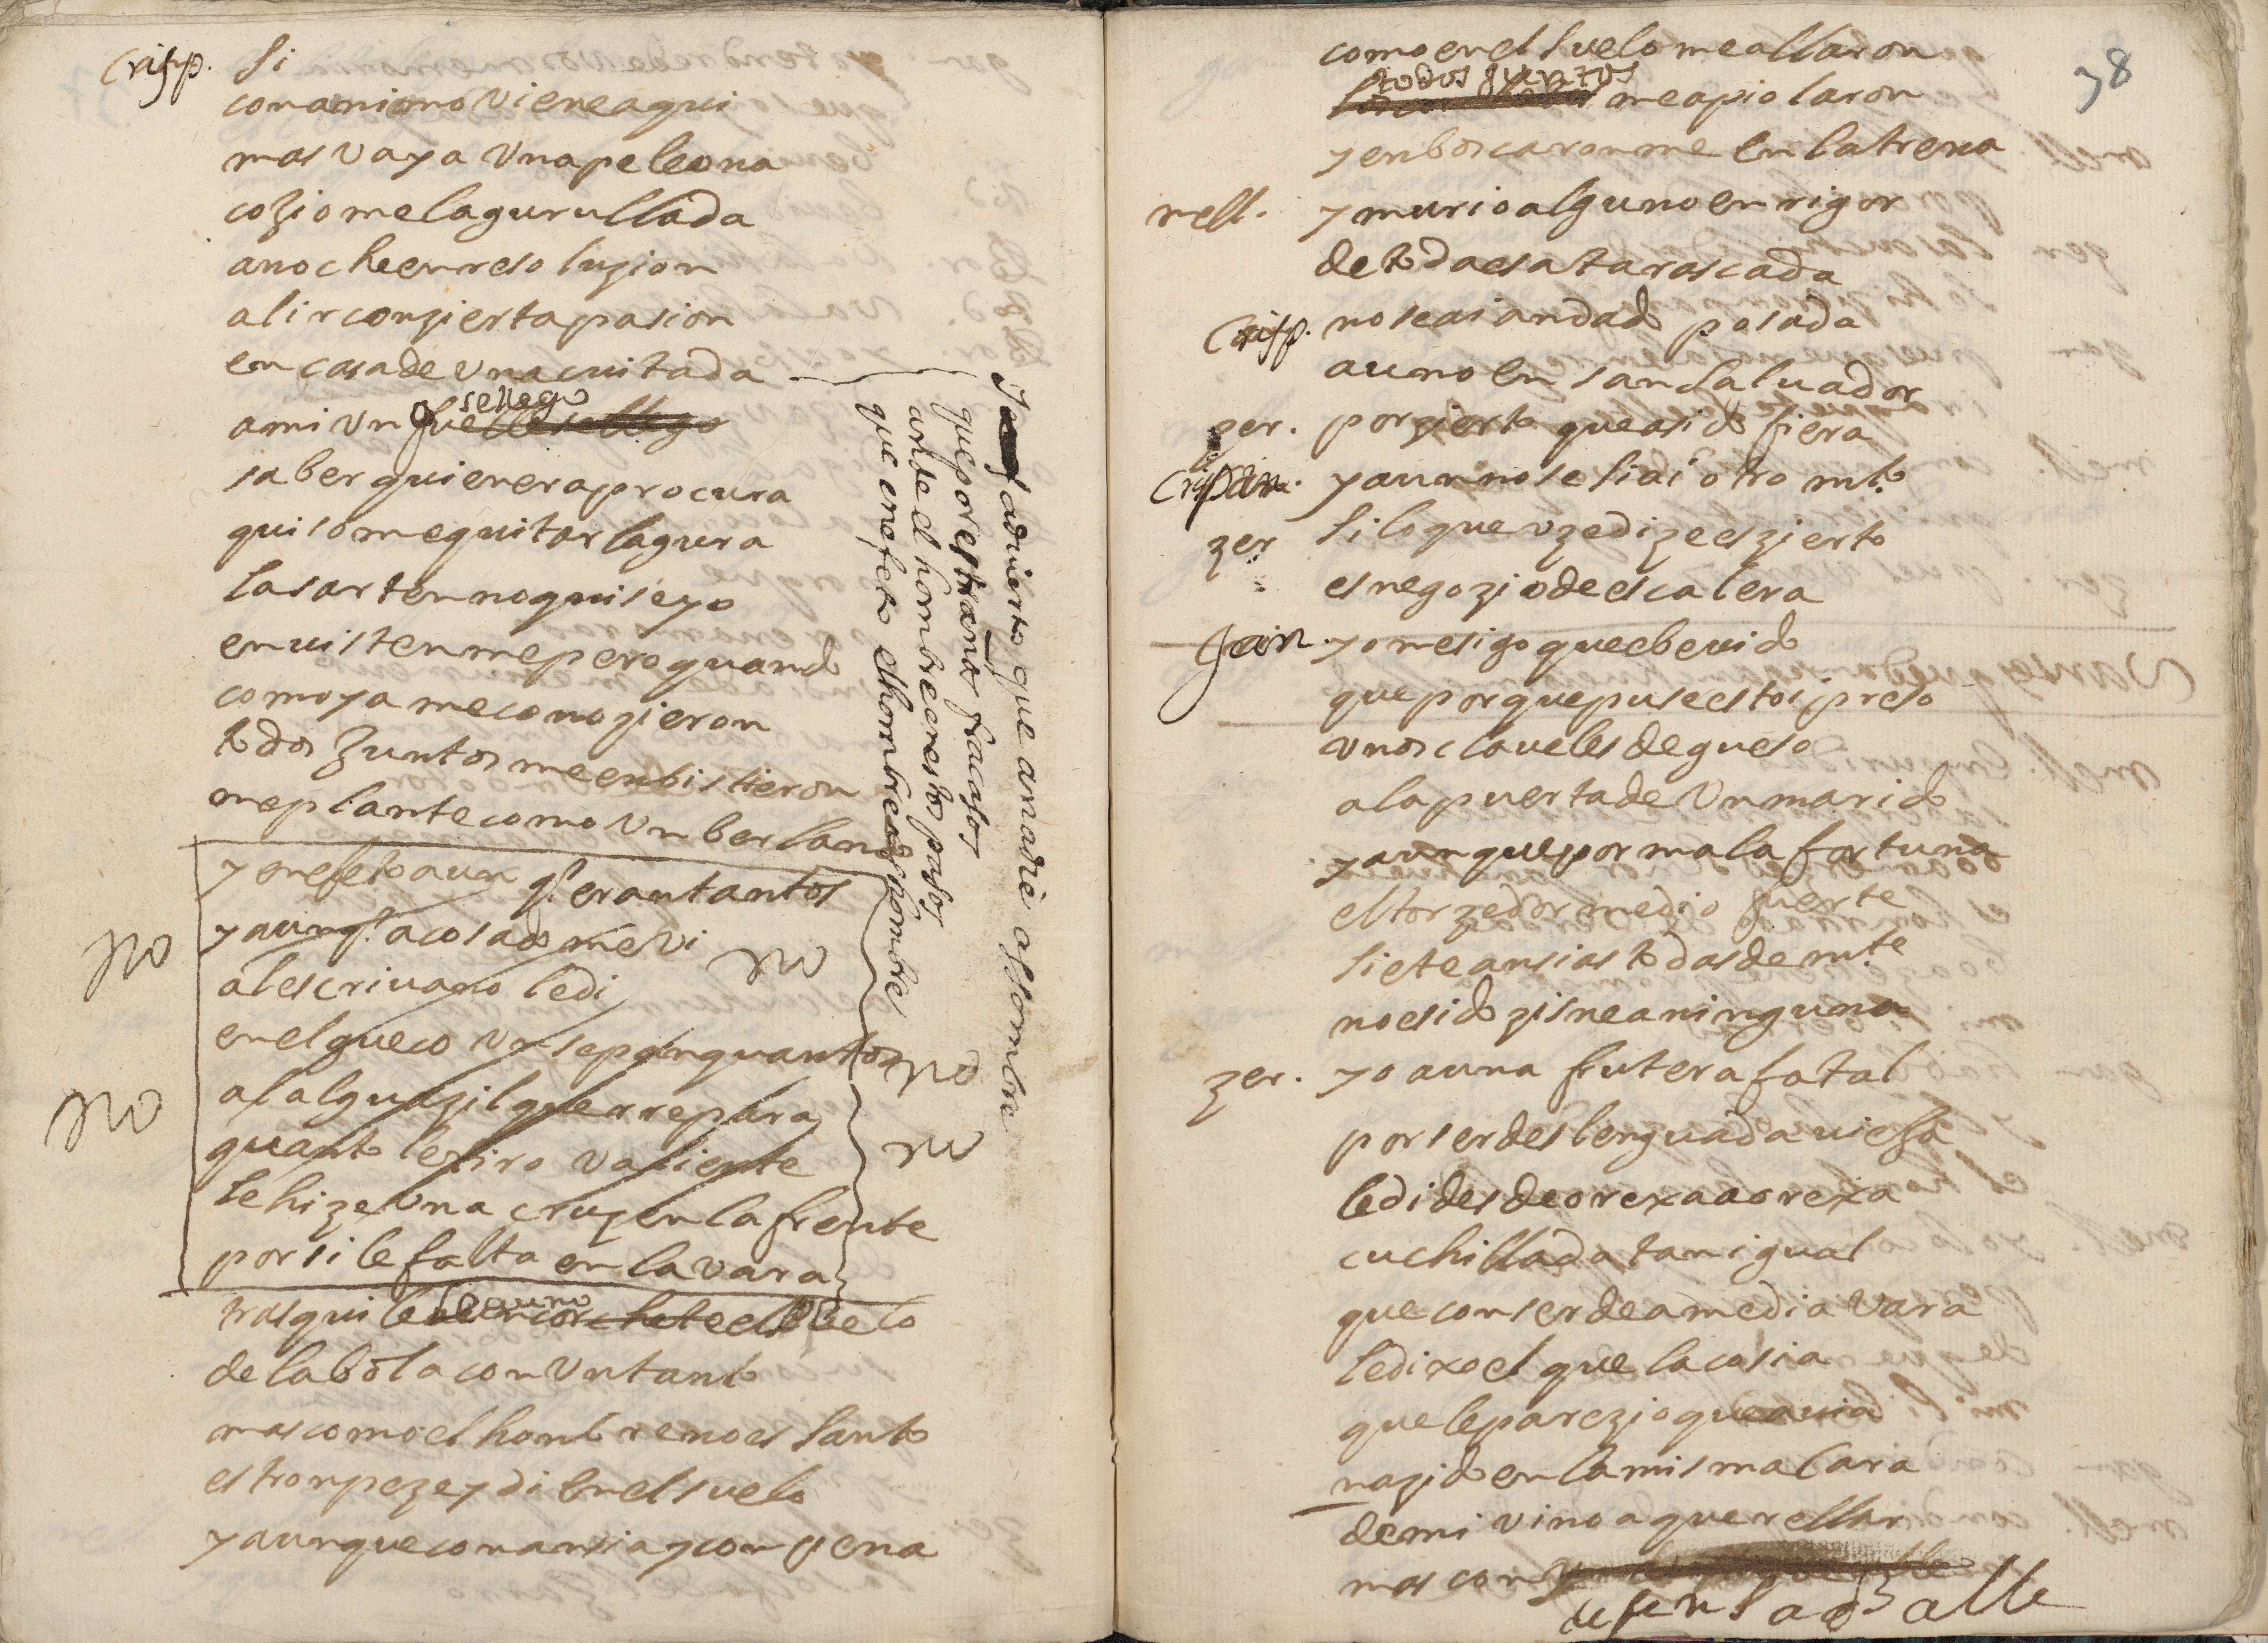 Crisp. Si
con animo viene aqui
mas vaya vna peleona
coxiome la gurullada
anoche en resoluzion
al ir con zierta pasion
en casa de vna cuitada
a mi vn fuelle se llego
sellego
saber quien era procura
quisome quitar la gura
la sarten no quise yo
enuistenme pero quando
como ya me conozieron
todos juntos me enbistieron
me plante como vn berlando
y en efeto aun q.e eran tantos
y aunq.e acosado me vi
al escriuano le di
en el gueco vn sepan quantos
al alguazil que r repara
quanto le tiro valiente
le hize vna cruz en la frente
por si le falta en la vara
trasquile a un corchete el pelo
de la bola con vn tanto
mas como el honbre no es santo
estronpeze y di en el suelo
y aunque con ansia y con pena
no
no
no
no
no
aduierto que a nadie assombre
que por estraños fracasos
ande el hombre en estos pasos
que en efeto el hombre es hombre
78
como en el suelo me allaron
todos juntos
me apiolaron
y enboscaronme en la trena
mell. y murio alguno en rigor
de toda esa tarascada
Crisp. no se ai an dado posada
a uno en san Saluador
zer. por zierto que a sido fiera
Crisp. y aun no se si ai otro mto.
zer si lo que vzed dize es zierto
es negozio de escalera
Jan. yo mesigo que e beuido
que porque puse estoi preso
vnos claueles de gueso
a la puerta de vn marido
y aunque por mala fortuna
el torzedor me dio fuerte
siete ansias todas de mte.
no e sido zisne a ninguna
zer. yo a una frutera fatal
por ser deslenguada uiessa
le di desde orexa a orexa
cuchillada tan igual
que con ser de a media vara
le dixo el que la cosia
que le parezio que auia
nazido en la misma cara
de mi vino a querellar
mas con